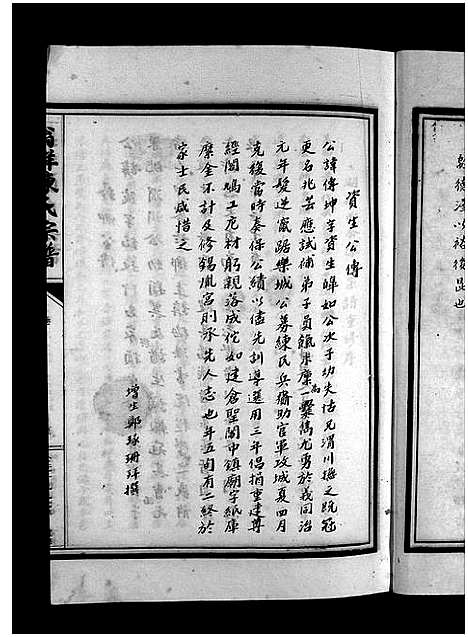 資生公傳
公諱傳坤字資生嶸如公次子幼失怙兄渭川撫之既冠
更名兆芸應試補弟子員飢米糜一爨尤勇於義同治
元年髮逆竄踞樂城公募練民兵齎助官軍攻城夏四月
克復當時奏保公績以儘先訓導選用三年倡捐重建尊
經閣鳩工庀材躬親落成佗如建倉聖閣中鎮廟字紙庫
糜金不計及修錫胤宮則承先人志也年五旬有二終於
家士民咸惜之
增生鄭琢珊拜撰
乾後淫以裕後昆也
陳氏宗譜